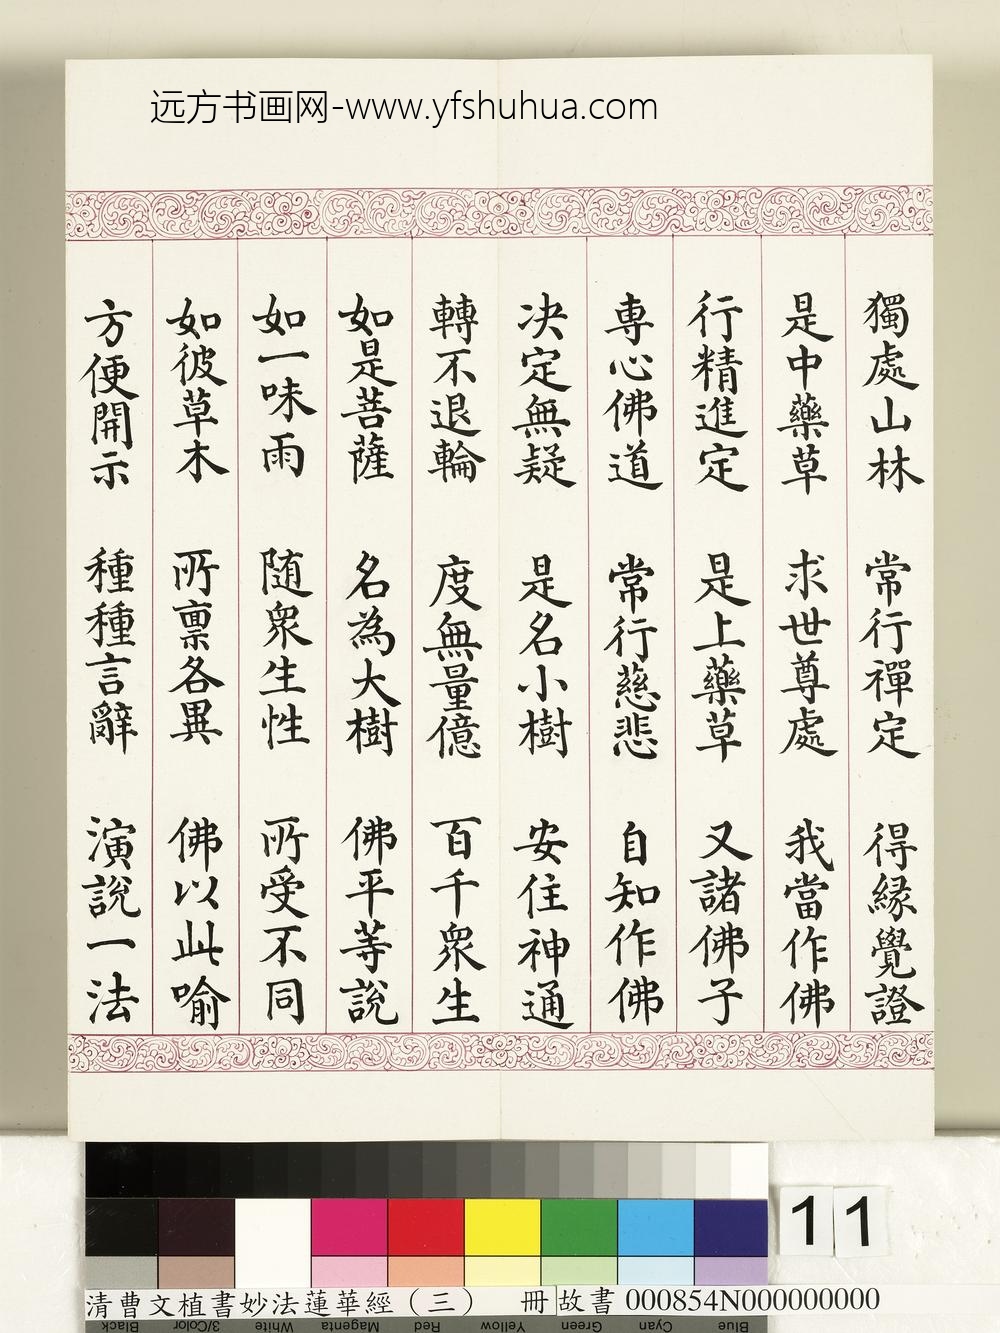 远方书画网-www.yfshuhua.com
獨處山林 常行禪定 得緣覺證
是中藥草 求世尊處 我當作佛
行精進定 是上藥草 又諸佛子
專心佛道 常行慈悲 自知作佛
决定無疑 是名小樹 安住神通
轉不退輪 度無量億 百千衆生
如是菩薩 名為大樹 佛平等說
如一味雨 随衆生性 所受不同
如彼草木 所禀各異 佛以此喻
方便開示 種種言辭 演說一法
11
清曹文植書妙法蓮華經（三） 冊 故書 000854N000000000
Black 3/Color White Magenta Red Yellow Green Cyan Blue